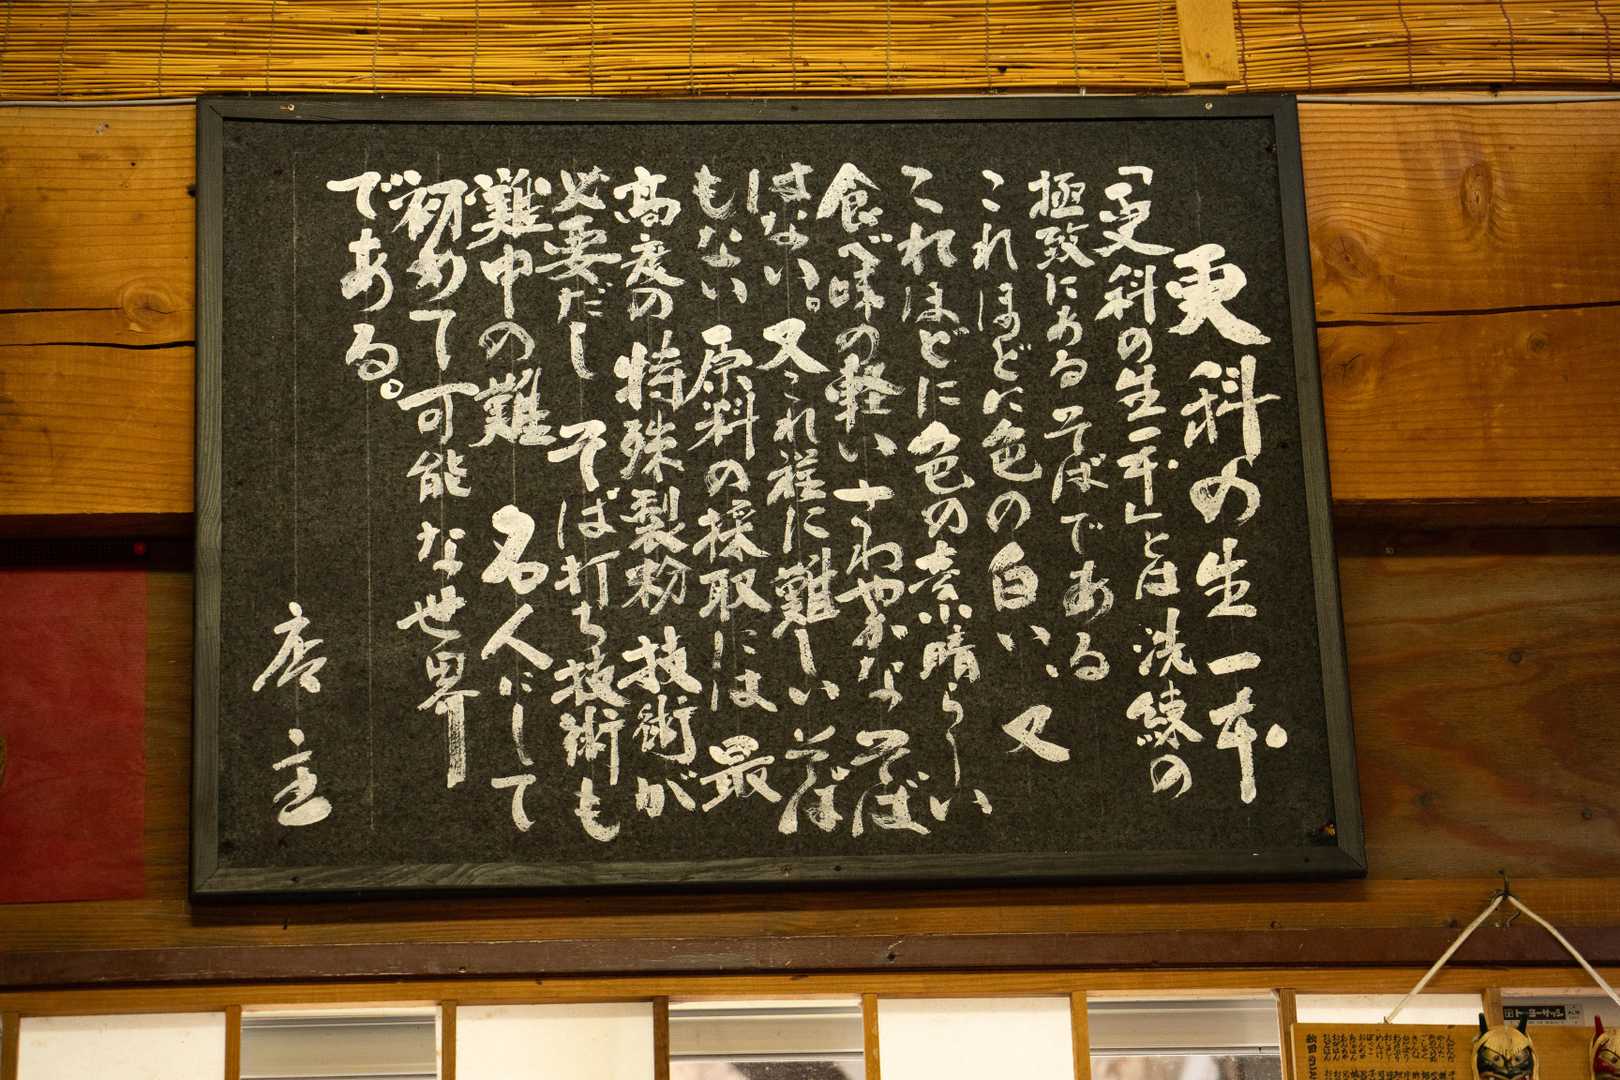 更科の生一本
「更科の生一本」とは洗練の
極致にあるそばである
これほどに色の白い、又
これほどに色の素晴らしい
食べ味の軽い さわやかなそば
はない。又これ程に難しいそば
もない 原料の採取には 最
高度の 特殊製粉 技術が
必要だし そば打ち技術も
難中の難 名人にして
初めて可能な世界
である。
店主
トーヨーサッシ